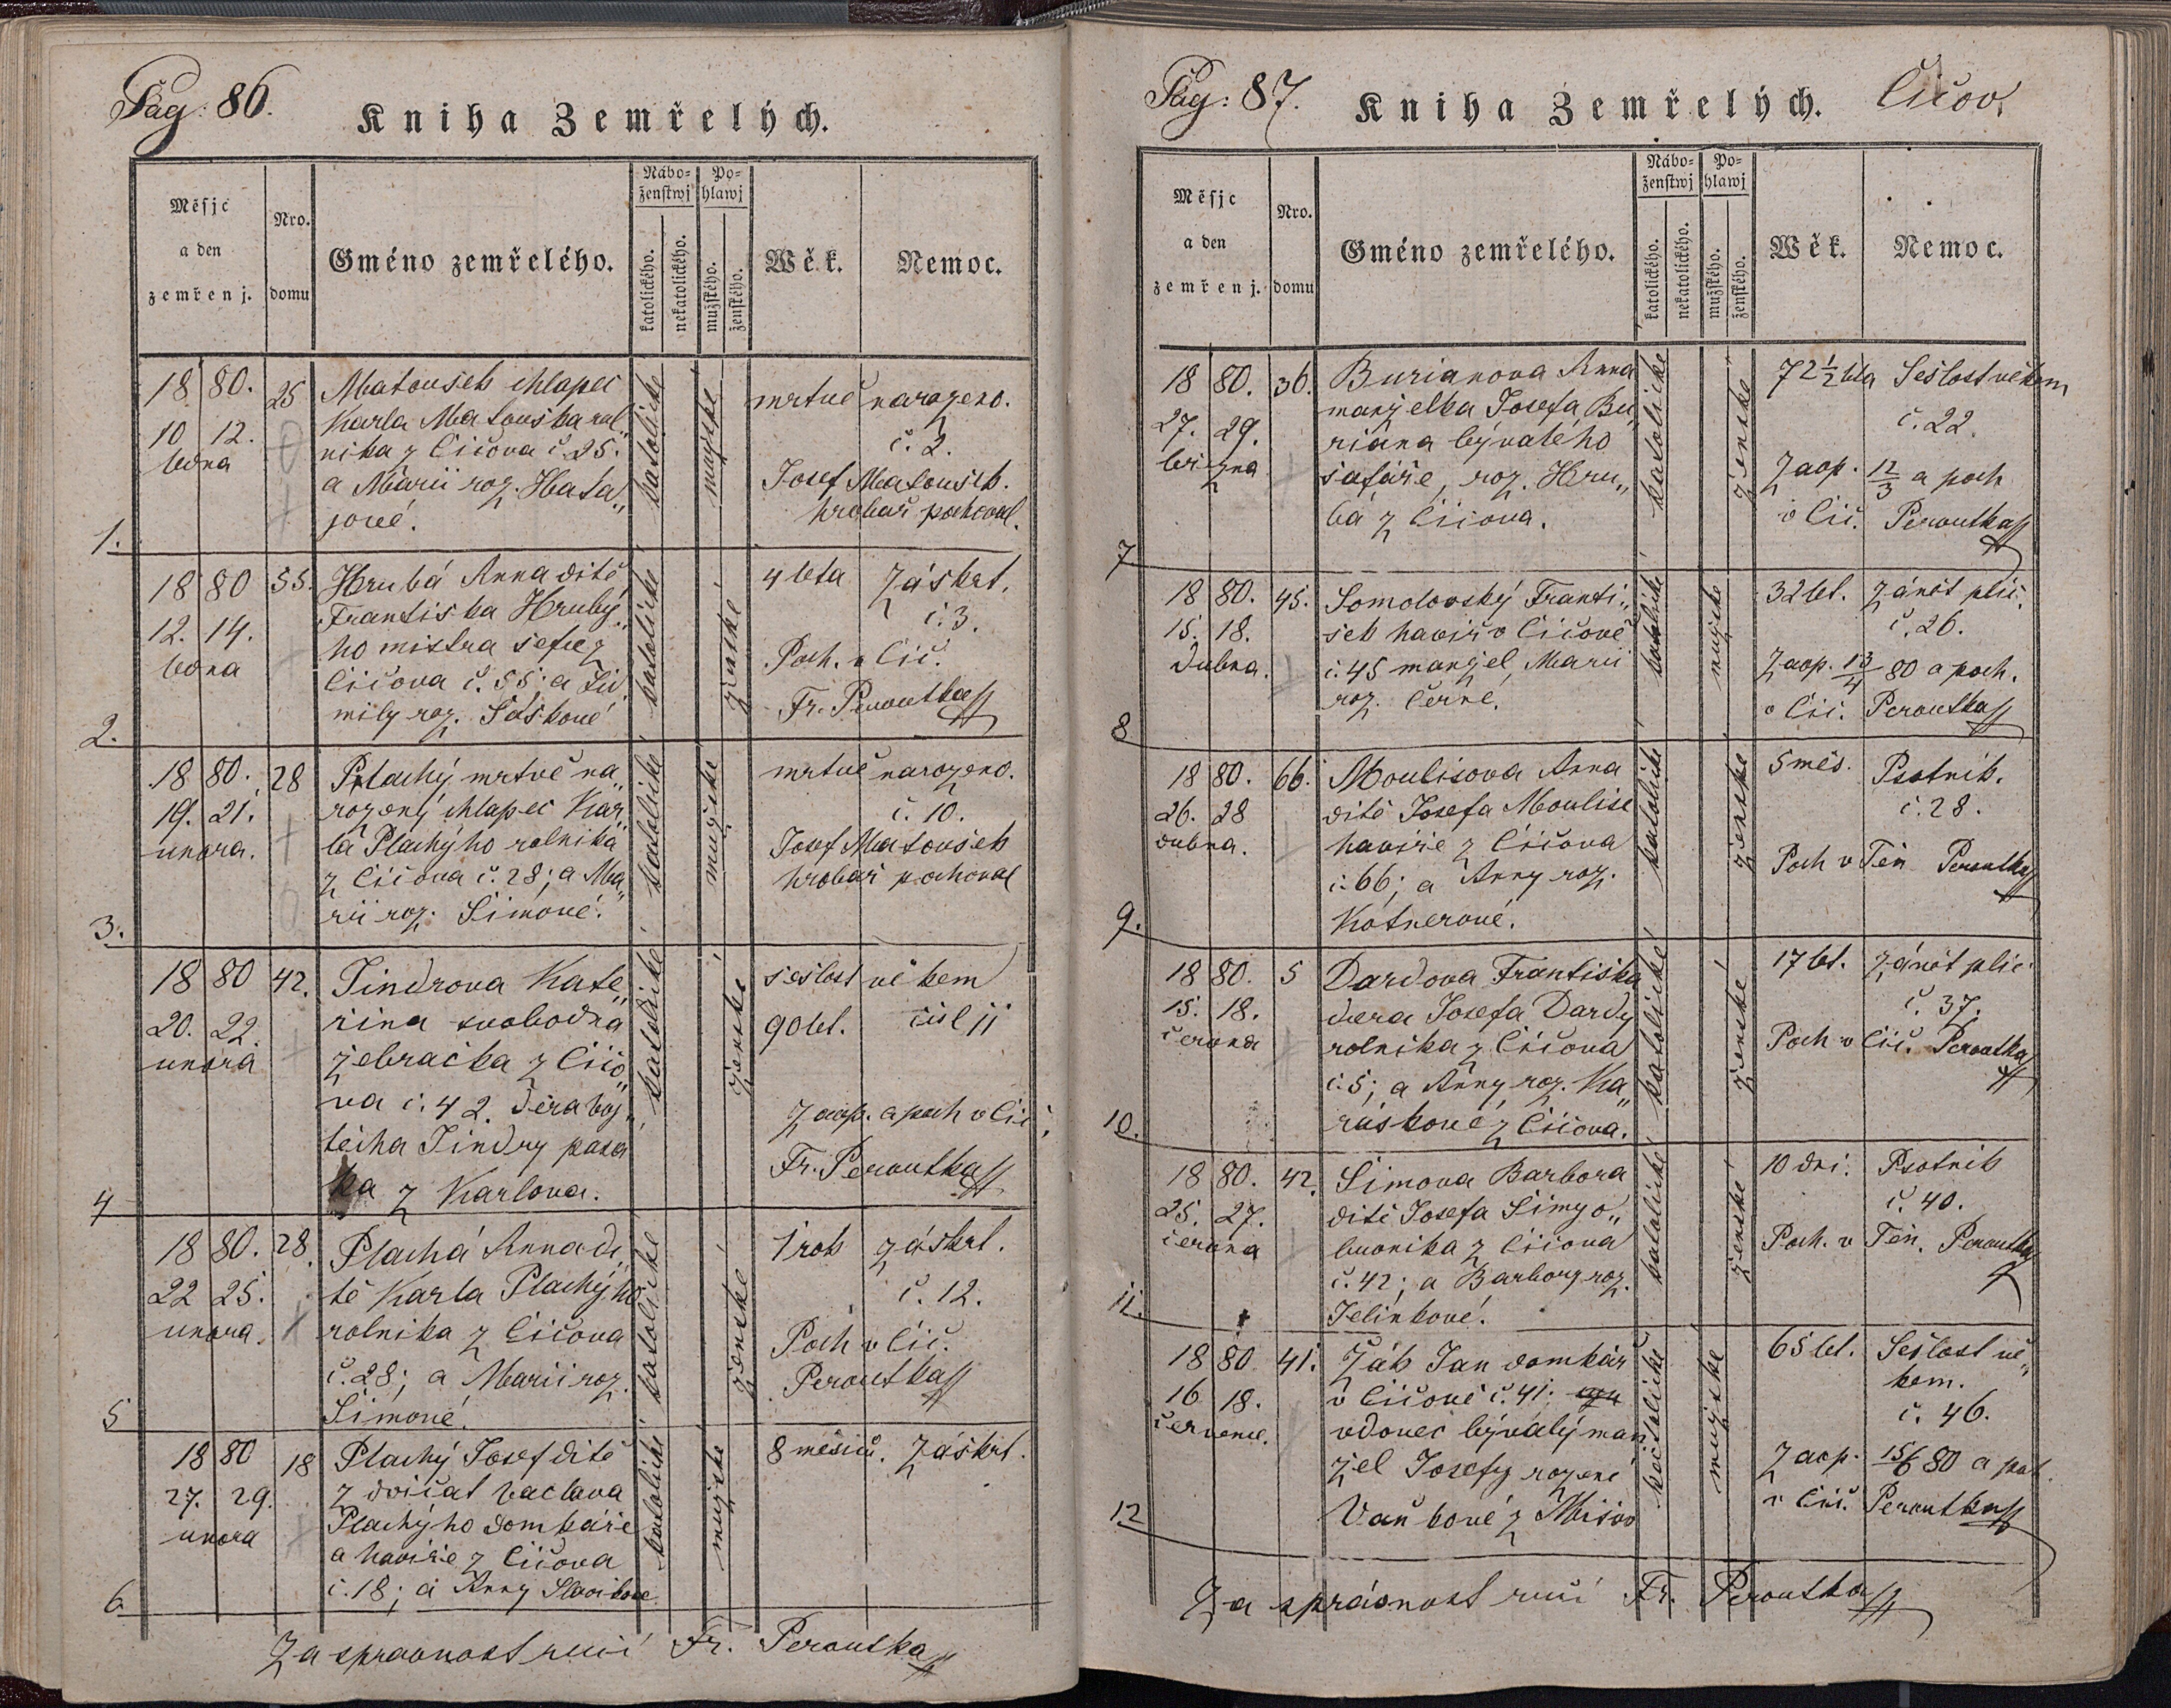 Pag: 86.
Kniha Zemřelých.
Měsjc a den zemřenj.
Nro. domu
Gméno zemřelého.
Nábo=ženstwj
katolického.
nekatolického.
Po=hlawj
mužského.
ženského.
Wěk.
Nemoc.
1.
18 80. 25
10 12.
ledna
Matoušek chlapec
Karla Matouška rol„
nika z Čičova č. 25.
a Marii roz. Hata„
jové.
katolické
mužské
mrtvě narozeno.
č. 2.
Josef Matoušek.
hrobař pochoval.
2.
18 80 55.
12. 14.
ledna
Hrubá Anna dítě
Františka Hrubý„
ho mistra
Čičova č. 55; a Lid
mily roz. Šáškové
katolické
ženské
4 leta Záškrt.
č. 3.
Poch. v Čič.
Fr. Peroutka
3.
18 80. 28
19. 21.
unora.
Plachý mrtvě na„
rozený chlapec Kar„
la Plachýho rolnika
z Čičova č. 28; a Ma„
rii roz. Šimové.
katolické
mužské
mrtvě narozeno.
č. 10.
Josef Matoušek
hrobař pochoval
4
18 80 42.
20. 22.
unora
Jindrova Kate„
řina svobodná
žebračka z Čičo„
va č. 42. dcera Voj„
těcha Jindry pasa
ka z Karlova.
katolické
ženské
sešlost věkem
90 let. čisl 11
Zaop. a poch v Čič.
Fr. Peroutka
5
18 80. 28.
22 25.
unora.
Plachá Anna di„
tě Karla Plachýho
rolnika z Čičova
č. 28; a Marii roz.
Šimové.
katolické
ženské
1 rok záškrt.
č. 12.
Poch v Čič.
Peroutka
6
18 80 18
27. 29.
unora
Plachý Josef ditě
z dvičat Vaclava
Plachýho domkáře
a havíře z Čičova
č. 18; a Anny
katolické
mužské
8 měsiců. Záškrt.
Za spravnost ručí Fr. Peroutka
Pag: 87.
Kniha Zemřelých.
Čičov.
Měsjc a den zemřenj.
Nro. domu
Gméno zemřelého.
Nábo=ženstwj
katolického.
nekatolického.
Po=hlawj
mužského.
ženského.
Wěk.
Nemoc.
7
18 80. 36.
27. 29.
března
Burianova Anna
manželka Josefa Bu„
riána bývalého
šafáře, roz. Hru„
bá z Čičova.
katolické
ženské
72 1/2 leta Sešlost věkem
č. 22.
Zaop. 12/3 a poch
v Čič. Peroutka
8
18 80. 45.
15. 18.
Dubna.
Somolovský Franti„
šek havíř v Čičově
č. 45 manžel Marii
roz. Černé.
katolické
mužské
32 let. Zánět plic.
č. 26.
Zaop. 13/4 80 a poch.
v Čič. Peroutka
9.
18 80. 66.
26. 28
dubna.
Moulisova Anna
dítě Josefa Moulise
havíře z Čičova
č. 66; a Anny roz.
Kotnerové.
katolické
ženské
5 měs. Psotnik.
č. 28.
Poch v Týn Peroutka
10.
18 80. 5
15. 18.
června
Dardova Františka
dcera Josefa Dardy
rolnika z Čičova
č. 5; a Anny roz. Ka„
ráskové z Čičova.
katolické
ženské
17 let. Zánět plic.
č. 37.
Poch v Čič. Peroutka
11.
18 80. 42.
25. 27.
června
Šimova Barbora
ditě Josefa Šimy o„
buvnika z Čičova
č. 42; a Barbory roz.
Jelínkové.
katolické
ženské
10 dní. Psotnik
č. 40.
Poch. v Týn. Peroutka
12
18 80 41.
16 18.
července.
Žák Jan domkář
v Čičově č. 41;
vdovec bývalý man
žel Josefy rozené
Vaňkové z Mišov
katolické
mužské
65 let. Sešlost vě„
kem.
č. 46.
Zaop. 15/6 80 a poch.
v Čič. Peroutka
Za správnost ručí Fr. Peroutka